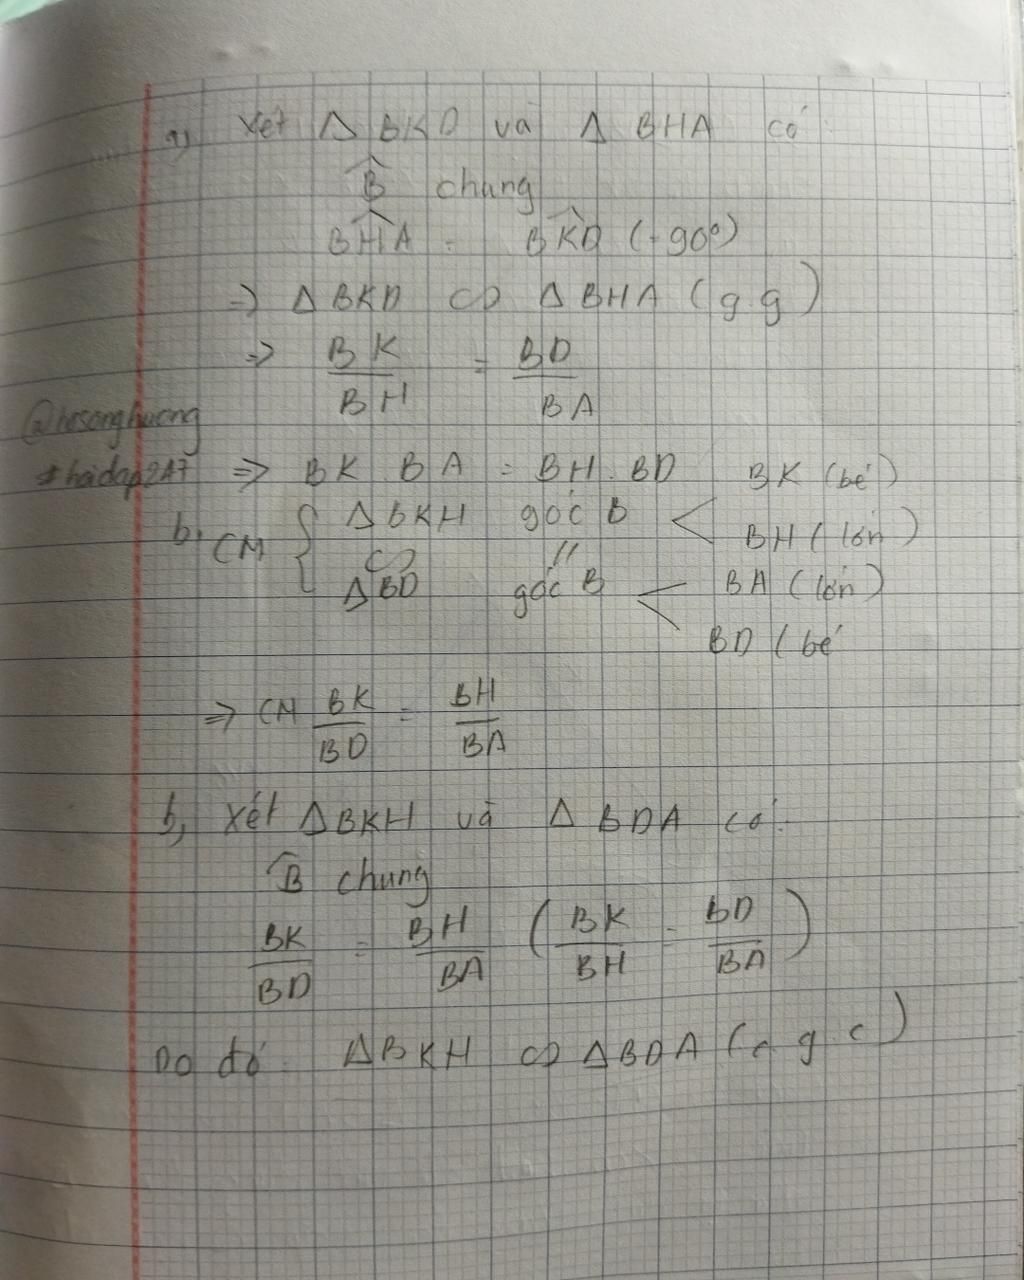 a) Xét Δ BKD và Δ BHA có:
B̂ chung
BĤA = BK̂D (=90°)
=> Δ BKD ∽ Δ BHA (g.g)
=> BK/BH = BD/BA
@hosonghuong
#hoidap247
=> BK BA = BH . BD
b, CM { Δ BKH góc B < BK (bé) BH (lớn)
∽ //
Δ BD góc B < BA (lớn) BD (bé
=> CM BK/BD = BH/BA
b, Xét Δ BKH và Δ BDA có:
B̂ chung
BK/BD = BH/BA (BK/BH = BD/BA)
Do đó: Δ BKH ∽ Δ BDA (c g c)